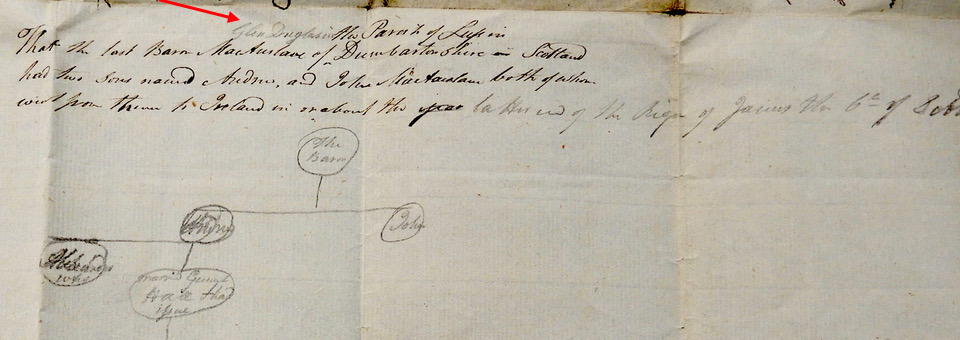 Glen Duglas in the Parish of Luss in
That the last Baron MacAuslane of Dumbartonshire in Scotland
had two sons named Andrew, and John MacAuslane both of whom
went from thence to Ireland in or about the year latter end of the Reign of James the 6th of
The
Baron
Andrew
John
had
issue